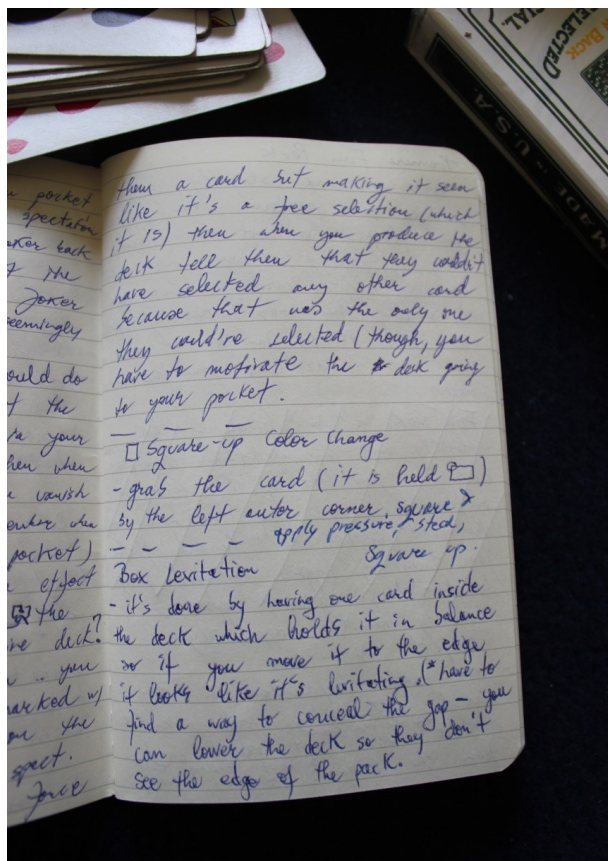 n pocket
spectator
oker back
f the
Joker
eemingly
ould do
t the
your
hen when
vanish
pocket)
effect
the
ne deck?
.. you
arked w/
the
spect.
Force
them a card but making it seen
like it's a free selection (which
it is) then when you produce the
deck tell them that they couldn't
have selected any other card
because that was the only one
they could're selected (though, you
have to motivate the deck going
to your pocket.
Square-up Color Change
- grab the card (it is held
by the left outer corner, square &
apply pressure, steal,
Square up.
Box Levitation
- it's done by having one card inside
the deck which holds it in balance
so if you move it to the edge
it looks like it's levitating. (*have to
find a way to conceal the gap – you
can lower the deck so they don't
see the edge of the pack.
BACK
SELECTED
MADE IN U.S.A.